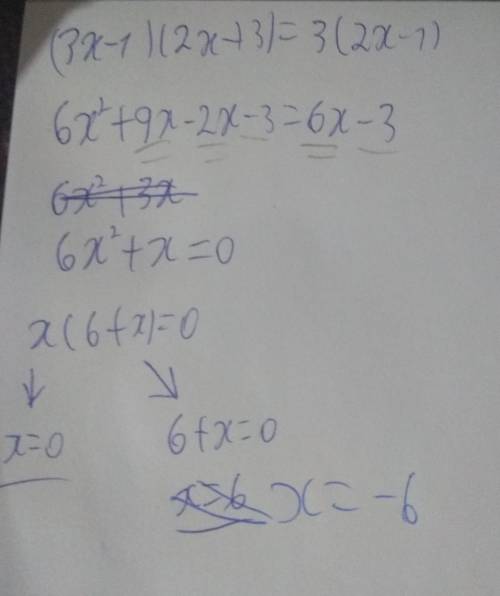 (3x-1)(2x+3)=3(2x-1)
6x²+9x-2x-3=6x-3
6x²+3x
6x²+x=0
x(6+x)=0
x=0 6+x=0
x=6 x=-6